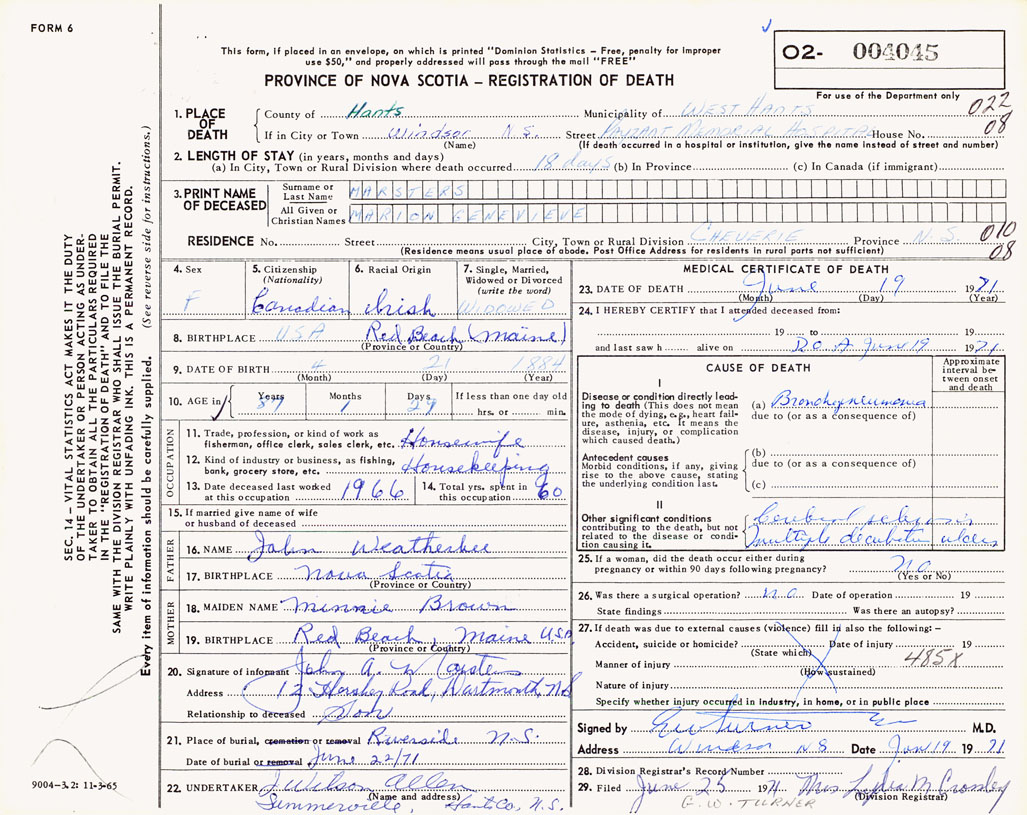 FORM 6
This form, if placed in an envelope, on which is printed "Dominion Statistics – Free, penalty for improper
use $50," and properly addressed will pass through the mail "FREE"
PROVINCE OF NOVA SCOTIA – REGISTRATION OF DEATH
02- 004045
For use of the Department only
1. PLACE OF DEATH
County of Hants Municipality of WEST HANTS 022
If in City or Town Windsor N.S. Street PAYZANT MEMORIAL HOSPITAL House No. 08
(Name) (If death occurred in a hospital or institution, give the name instead of street and number)
2. LENGTH OF STAY (in years, months and days)
(a) In City, Town or Rural Division where death occurred 18 days (b) In Province (c) In Canada (if immigrant)
3. PRINT NAME OF DECEASED
Surname or Last Name MARSTERS
All Given or Christian Names MARION GENEVIEVE
RESIDENCE No. Street City, Town or Rural Division CHEVERIE Province N.S. 010
(Residence means usual place of abode. Post Office Address for residents in rural parts not sufficient) 08
SEC. 14 – VITAL STATISTICS ACT MAKES IT THE DUTY
OF THE UNDERTAKER OR PERSON ACTING AS UNDER-
TAKER TO OBTAIN ALL THE PARTICULARS REQUIRED
IN THE "REGISTRATION OF DEATH" AND TO FILE THE
SAME WITH THE DIVISION REGISTRAR WHO SHALL ISSUE THE BURIAL PERMIT.
WRITE PLAINLY WITH UNFADING INK. THIS IS A PERMANENT RECORD.
Every item of information should be carefully supplied. (See reverse side for instructions.)
4. Sex F
5. Citizenship (Nationality) Canadian
6. Racial Origin Irish
7. Single, Married, Widowed or Divorced (write the word) WIDOWED
8. BIRTHPLACE USA Red Beach (Maine)
(Province or Country)
9. DATE OF BIRTH 4 21 1884
(Month) (Day) (Year)
10. AGE in Years 87 Months 1 Days 29 If less than one day old hrs. or min.
OCCUPATION
11. Trade, profession, or kind of work as
fisherman, office clerk, sales clerk, etc. Housewife
12. Kind of industry or business, as fishing,
bank, grocery store, etc. Housekeeping
13. Date deceased last worked at this occupation 1966
14. Total yrs. spent in this occupation 60
15. If married give name of wife
or husband of deceased
FATHER
16. NAME John Weatherbee
17. BIRTHPLACE Nova Scotia
(Province or Country)
MOTHER
18. MAIDEN NAME Minnie Brown
19. BIRTHPLACE Red Beach, Maine USA
(Province or Country)
20. Signature of informant John A. W
Address 12 Hershey Road, Dartmouth, NS
Relationship to deceased Son
21. Place of burial, cremation or removal Riverside N.S.
Date of burial or removal June 22/71
22. UNDERTAKER J. Wilson Allen
(Name and address)
Summerville, Hants Co, N.S.
9004–3.2: 11-3-65
MEDICAL CERTIFICATE OF DEATH
23. DATE OF DEATH June 19 1971
(Month) (Day) (Year)
24. I HEREBY CERTIFY that I attended deceased from:
19 to 19
and last saw h alive on D.O.A. June 19 1971
CAUSE OF DEATH
Approximate interval between onset and death
I
Disease or condition directly lead-
ing to death (This does not mean
the mode of dying, e.g., heart fail-
ure, asthenia, etc. It means the
disease, injury, or complication
which caused death.)
(a) Bronchopneumonia
due to (or as a consequence of)
Antecedent causes
Morbid conditions, if any, giving
rise to the above cause, stating
the underlying condition last.
(b)
due to (or as a consequence of)
(c)
II
Other significant conditions
contributing to the death, but not
related to the disease or condi-
tion causing it.
Cerebral sclerosis
multiple decubitus ulcers
25. If a woman, did the death occur either during
pregnancy or within 90 days following pregnancy? No
(Yes or No)
26. Was there a surgical operation? No Date of operation 19
State findings Was there an autopsy?
27. If death was due to external causes (violence) fill in also the following:–
Accident, suicide or homicide? Date of injury 19
(State which) 485X
Manner of injury
(How sustained)
Nature of injury
Specify whether injury occurred in industry, in home, or in public place
Signed by GW Turner M.D.
Address Windsor NS Date Jun 19 1971
28. Division Registrar's Record Number
29. Filed June 25 1971 Mrs Lydia M Crossley
(Division Registrar)
G.W. TURNER